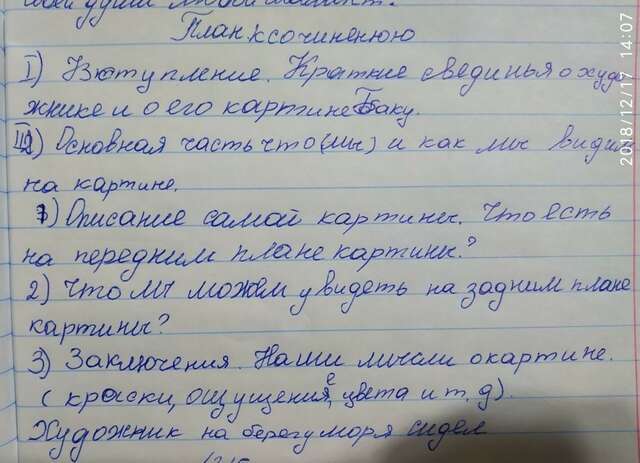 своей души любой момент.
План к сочиненюю
I) Вютупление. Краткие свединья о худо
жнике и о его картине Баку.
II) Основная часть что (мы) и как мы видим
на картине.
1) Описание самой картины. Что есть
на передним плане картины?
2) Что мы можем увидеть на задним плане
картины?
3) Заключения. Наши мысли о картине.
(краски, ощущение, цвета и т. д).
Художник на берегу моря сидел
2018/12/17 14:07